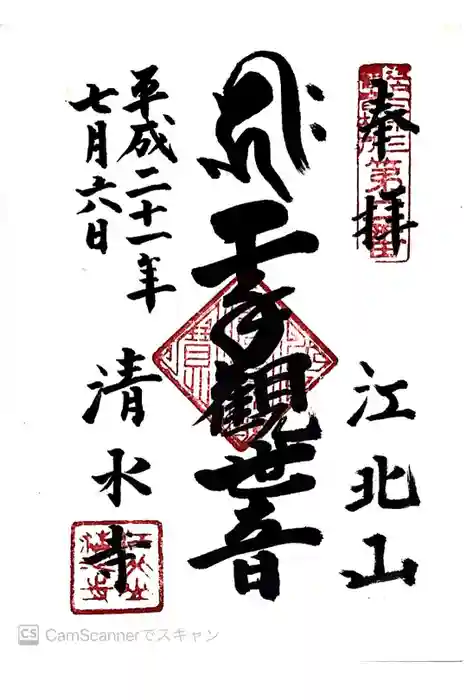 奉拝
江北山
千手観世音
平成二十一年
七月六日
清水寺
CS CamScannerでスキャン